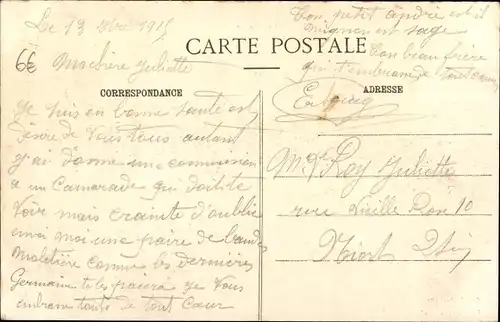 Le 13 1915
Ton petit andré est il
mignon et sage
CARTE POSTALE
Ton beau frère
66
Ma chère Juliette
qui t'embrasse de tout cœur
CORRESPONDANCE
ADRESSE
Je suis en bonne santé et
désire de vous tous autant
j'ai donné une commission
a un Camarade qui doit te
voir mais crainte d'oublie
envoi moi une paire de bandes
Moletière comme les dernières
Germaine te les paiera je vous
embrasse toutes de tout Cœur
Mme Roy Juliette
rue Vieille Rose 10
Niort